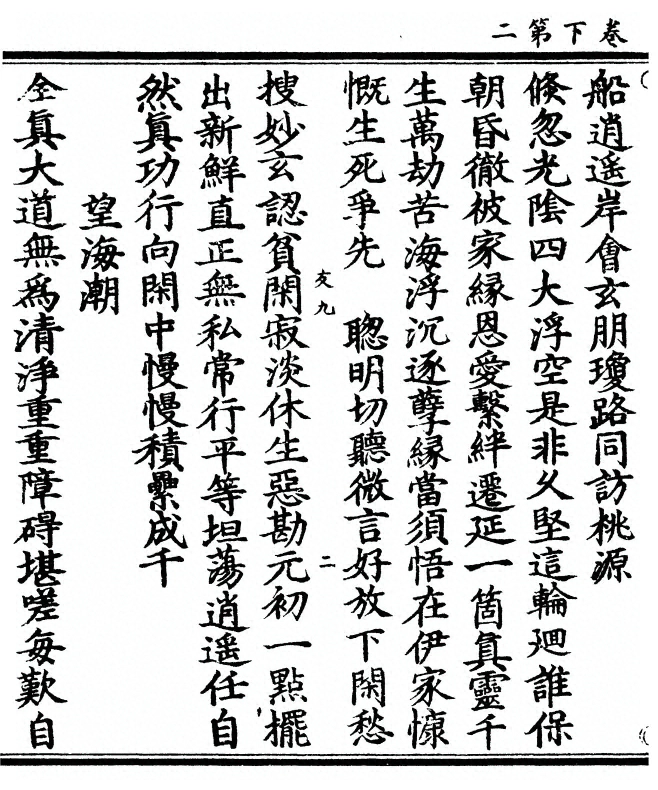 卷下第二
船逍遥岸會玄朋瓊路同訪桃源
倐忽光陰四大浮空是非久堅這輪廻誰保
朝昏徹被家緣恩愛繫絆遷延一箇真靈千
生萬劫苦海浮沉逐孽緣當須悟在伊家慷
慨生死爭先　聦明切聽微言好放下閑愁
攴九　二
搜妙玄認貧閑寂淡休生惡勘元初一點擺
出新鮮直正無私常行平等坦蕩逍遥任自
然真功行向閑中慢慢積纍成千
望海潮
全真大道無爲清淨重重障碍堪嗟每歎自